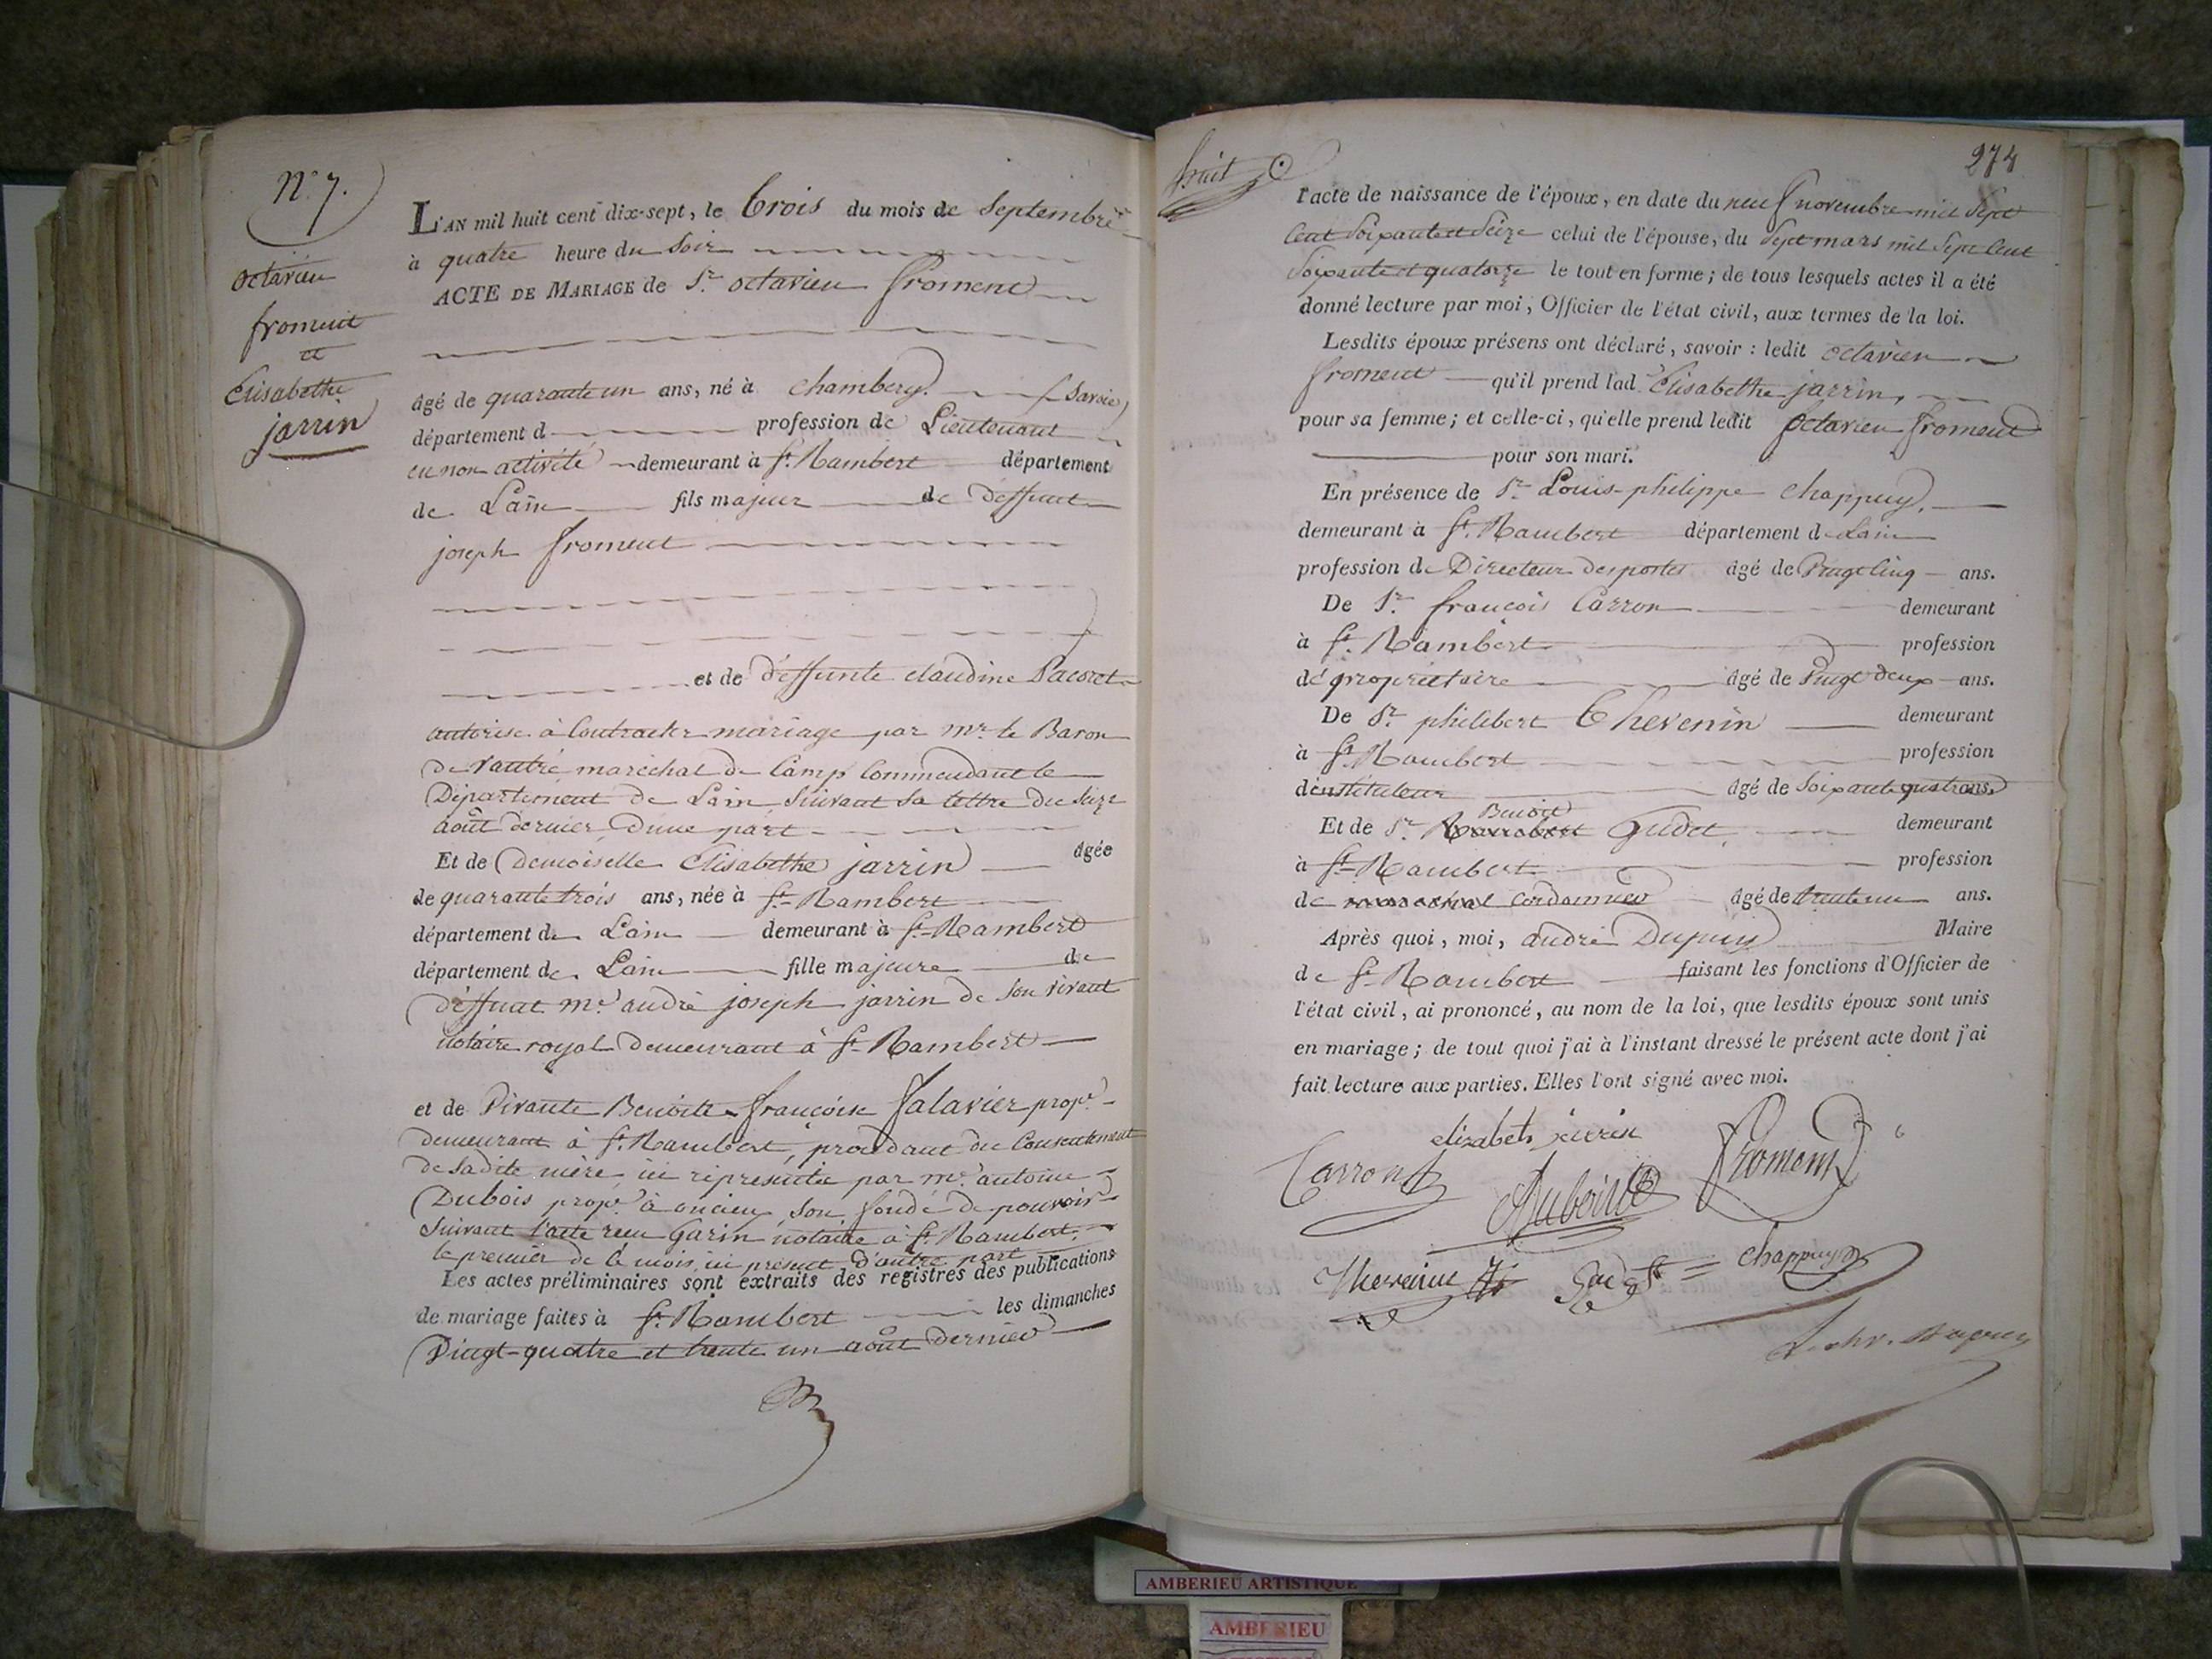 N.° 7.
octavien
froment
et
Elisabethe
jarrin
L'AN mil huit cent dix-sept, le trois du mois de Septembre
à quatre heure du Soir
ACTE DE MARIAGE de Sr. octavien froment
âgé de quarante un ans, né à chambery. (Savoie)
département d profession de Lieutenant
en non activité demeurant à St. Rambert département
de Lain fils majeur de deffunt
joseph froment
et de deffunte claudine Pacoret
autorisé à Contracter mariage par mr. le Baron
de vautré maréchal de Camp Commendant le
Département de Lain Suivant Sa lettre du Seize
août dernier, D'une part
Et de Demoiselle Elisabethe jarrin âgée
de quarante trois ans, née à St. Rambert
département de Lain demeurant à St. Rambert
département de Lain fille majeure de
deffunt me. andré joseph jarrin de Son vivant
notaire royal demeurant à St. Rambert
et de Vivante Benoite françoise Salavier propre.
demeurant à St. Rambert, procédant du Consentement
de Sadite mère, ici représentée par mr. antoine
Dubois propre. à oncieu, Son fondé de pouvoir
Suivant l'acte reçu Garin notaire à St. Rambert,
le premier de Ce mois, ici présent, d'autre part
Les actes préliminaires sont extraits des registres des publications
de mariage faites à St. Rambert les dimanches
Vingt-quatre et trente un août dernier
274
l'acte de naissance de l'époux, en date du neuf novembre mil Sept
Cent Soixante et Seize celui de l'épouse, du Sept mars mil Sept Cent
Soixante et quatorze le tout en forme; de tous lesquels actes il a été
donné lecture par moi, Officier de l'état civil, aux termes de la loi.
Lesdits époux présens ont déclaré, savoir : ledit octavien
froment qu'il prend lad. Elisabethe jarrin,
pour sa femme; et celle-ci, qu'elle prend ledit Octavien froment
pour son mari.
En présence de Sr. Louis-philippe chappuy,
demeurant à St. Rambert département de Lain
profession de Directeur des postes âgé de Vingt Cinq ans.
De Sr. françois Carron demeurant
à St. Rambert profession
de propriétaire âgé de Vingt deux ans.
De Sr. philibert Thevenin demeurant
à St. Rambert profession
d'instituteur âgé de Soixante quatre ans.
Benoit
Et de Sr. Gudet, demeurant
à St. Rambert profession
de Cordonnier âgé de trente un ans.
Après quoi, moi, andré Dupuy Maire
de St. Rambert faisant les fonctions d'Officier de
l'état civil, ai prononcé, au nom de la loi, que lesdits époux sont unis
en mariage; de tout quoi j'ai à l'instant dressé le présent acte dont j'ai
fait lecture aux parties. Elles l'ont signé avec moi.
elizabets jarrin
Carron froment
Dubois
Thevenin chappuy
Dupuy
AMBERIEU ARTISTIQUE
AMBERIEU